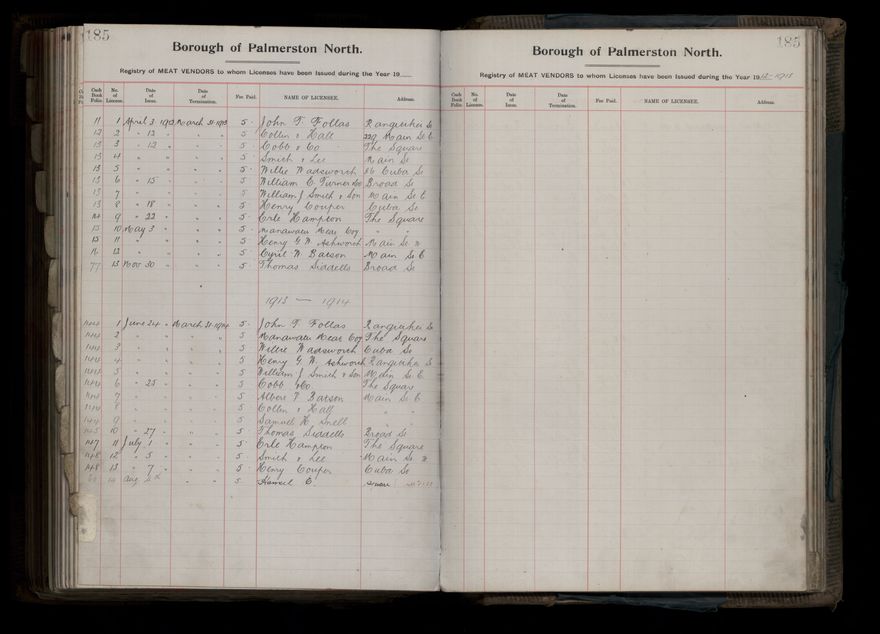 185
Borough of Palmerston North.
Registry of MEAT VENDORS to whom Licenses have been Issued during the Year 19
Cash Book Folio No. of License. Date of Issue. Date of Termination. Fee Paid. NAME OF LICENSEE. Address.
11 1 April 3 1912 March 31-1913 5 - John T. Follas Rangitikei St
12 2 " 12 " " " " 5 Collin & Hall 229 Main St E
13 3 " 12 " " " " 5 - Cobb & Co The Square
13 4 " " " " " " 5 - Smith & Lee Main St
13 5 " " " " " 5 - Willie Wadsworth Cuba St
13 6 " 15 " " " " 5 - William C. Turner & Co Broad St
13 7 " " " " 5 - William J Smith & Son Main St E
13 8 " 18 " " " " 5 - Henry Couper Cuba St
14 9 " 22 " " " " 5 - Erle Hampton The Square
15 10 May 3 " " " " 5 - Manawatu Meat Coy " "
15 11 " " " " " 5 - Henry G. W. Ashworth Main St W
12 " " " " 5 - Cyril W Batson Main St E
77 13 Nov 30 " " " 5 - Thomas Siddells Broad St
1913 — 1914
144 1 June 24 " March 31-1914 5 - John T. Follas Rangitikei St
144 2 " " " " " " 5 Manawatu Meat Coy The Square
144 3 " " " " " " 5 Willie Wadsworth Cuba St
144 4 " " " " " 5 - Henry G. W. Ashworth Rangitikei St
144 5 " " " " " 5 William J Smith & Son Main St E
144 6 " 25 " " " " 5 Cobb & Co The Square
144 7 " " " " " 5 Albert T Batson Main St E
144 8 " " " " " 5 Collin & Hall " "
144 9 " " " " " 5 Samuel H. Snell " "
145 10 " 27 " " " " 5 - Thomas Siddells Broad St
147 11 July 1 " " " " 5 - Erle Hampton The Square
148 12 " 5 " " " " 5 - Smith & Lee Main St W
148 13 " 7 " " " " 5 - Henry Couper Cuba St
14 Aug " " 5 Square
185
Borough of Palmerston North.
Registry of MEAT VENDORS to whom Licenses have been Issued during the Year 1912-1913
Cash Book Folio No. of License. Date of Issue. Date of Termination. Fee Paid. NAME OF LICENSEE. Address.